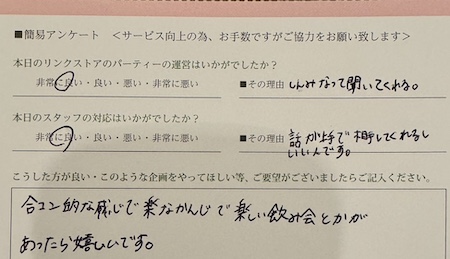 ■簡易アンケート ＜サービス向上の為、お手数ですがご協力をお願い致します＞
本日のリンクストアのパーティーの運営はいかがでしたか？
非常に良い・良い・悪い・非常に悪い ■その理由 しんみなって聞いてくれる。
本日のスタッフの対応はいかがでしたか？
非常に良い・良い・悪い・非常に悪い ■その理由 話が上手で してくれるし
いい人です。
こうした方が良い・このような企画をやってほしい等、ご要望がございましたらご記入ください。
合コン的な感じで楽なかんじで楽しい飲み会とかが
あったら嬉しいです。